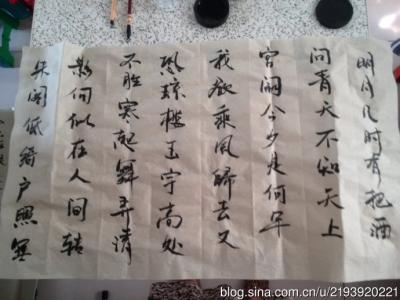 明月几时有把酒
问青天不知天上
宫阙今夕是何年
我欲乘风归去又
恐琼楼玉宇高处
不胜寒起舞弄清
影何似在人间转
朱阁低绮户照无
blog.sina.com.cn/u/2193920221